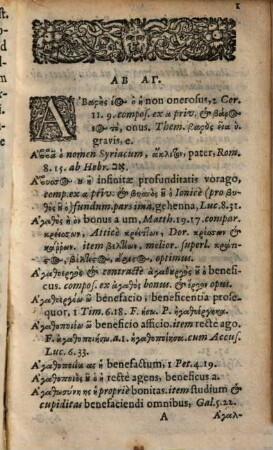 1
ΑΒ ΑΓ.
ΑΒαρὴς ὁ ἡ non onerosus, 2 Cor.
11. 9. compos. ex α priv. & βάρος
onus. Them. βαρὺς εῖα ὺ
gravis, e.
Αββᾶ ὁ nomen Syriacum, pater, Rom.
8. 15. ab Hebr. אב.
Αβυσσος ἡ infinitæ profunditatis vorago,
comp. ex α priv. & βυσὸς ἡ ὁ Ionicè (pro βυ
θὸς ὁ) fundum, pars ima, gehenna, Luc. 8. 31.
Αγαθὸς ἡ ὸν bonus a um, Matth. 19. 17. compar.
κρείσσων, Atticè κρείττων, Dor. &
item βελτίων, melior. superl.
optimus.
Αγαθοεργὸς & contractè ἀγαθουργὸς ἡ ὁ benefi-
cus. compos. ex ἀγαθὸς bonus. & ἔργον opus.
Αγαθοεργέω ῶ benefacio, beneficentia prose-
quor, 1 Tim. 6. 18. F. ήσω. P.
Αγαθοποιέω ῶ beneficio afficio. item recte ago.
F. ἀγαθοποιήσω. a. 1. cum Accus.
Luc. 6. 33.
Αγαθοποιΐα ας ἡ benefactum, 1 Pet. 4. 19.
Αγαθοποιὸς ἡ ὁ rectè agens, beneficus a.
Αγαθωσύνη ης ἡ propriè bonitas. item studium &
cupiditas benefaciendi omnibus, Gal. 5. 22.
A Αγαλ-